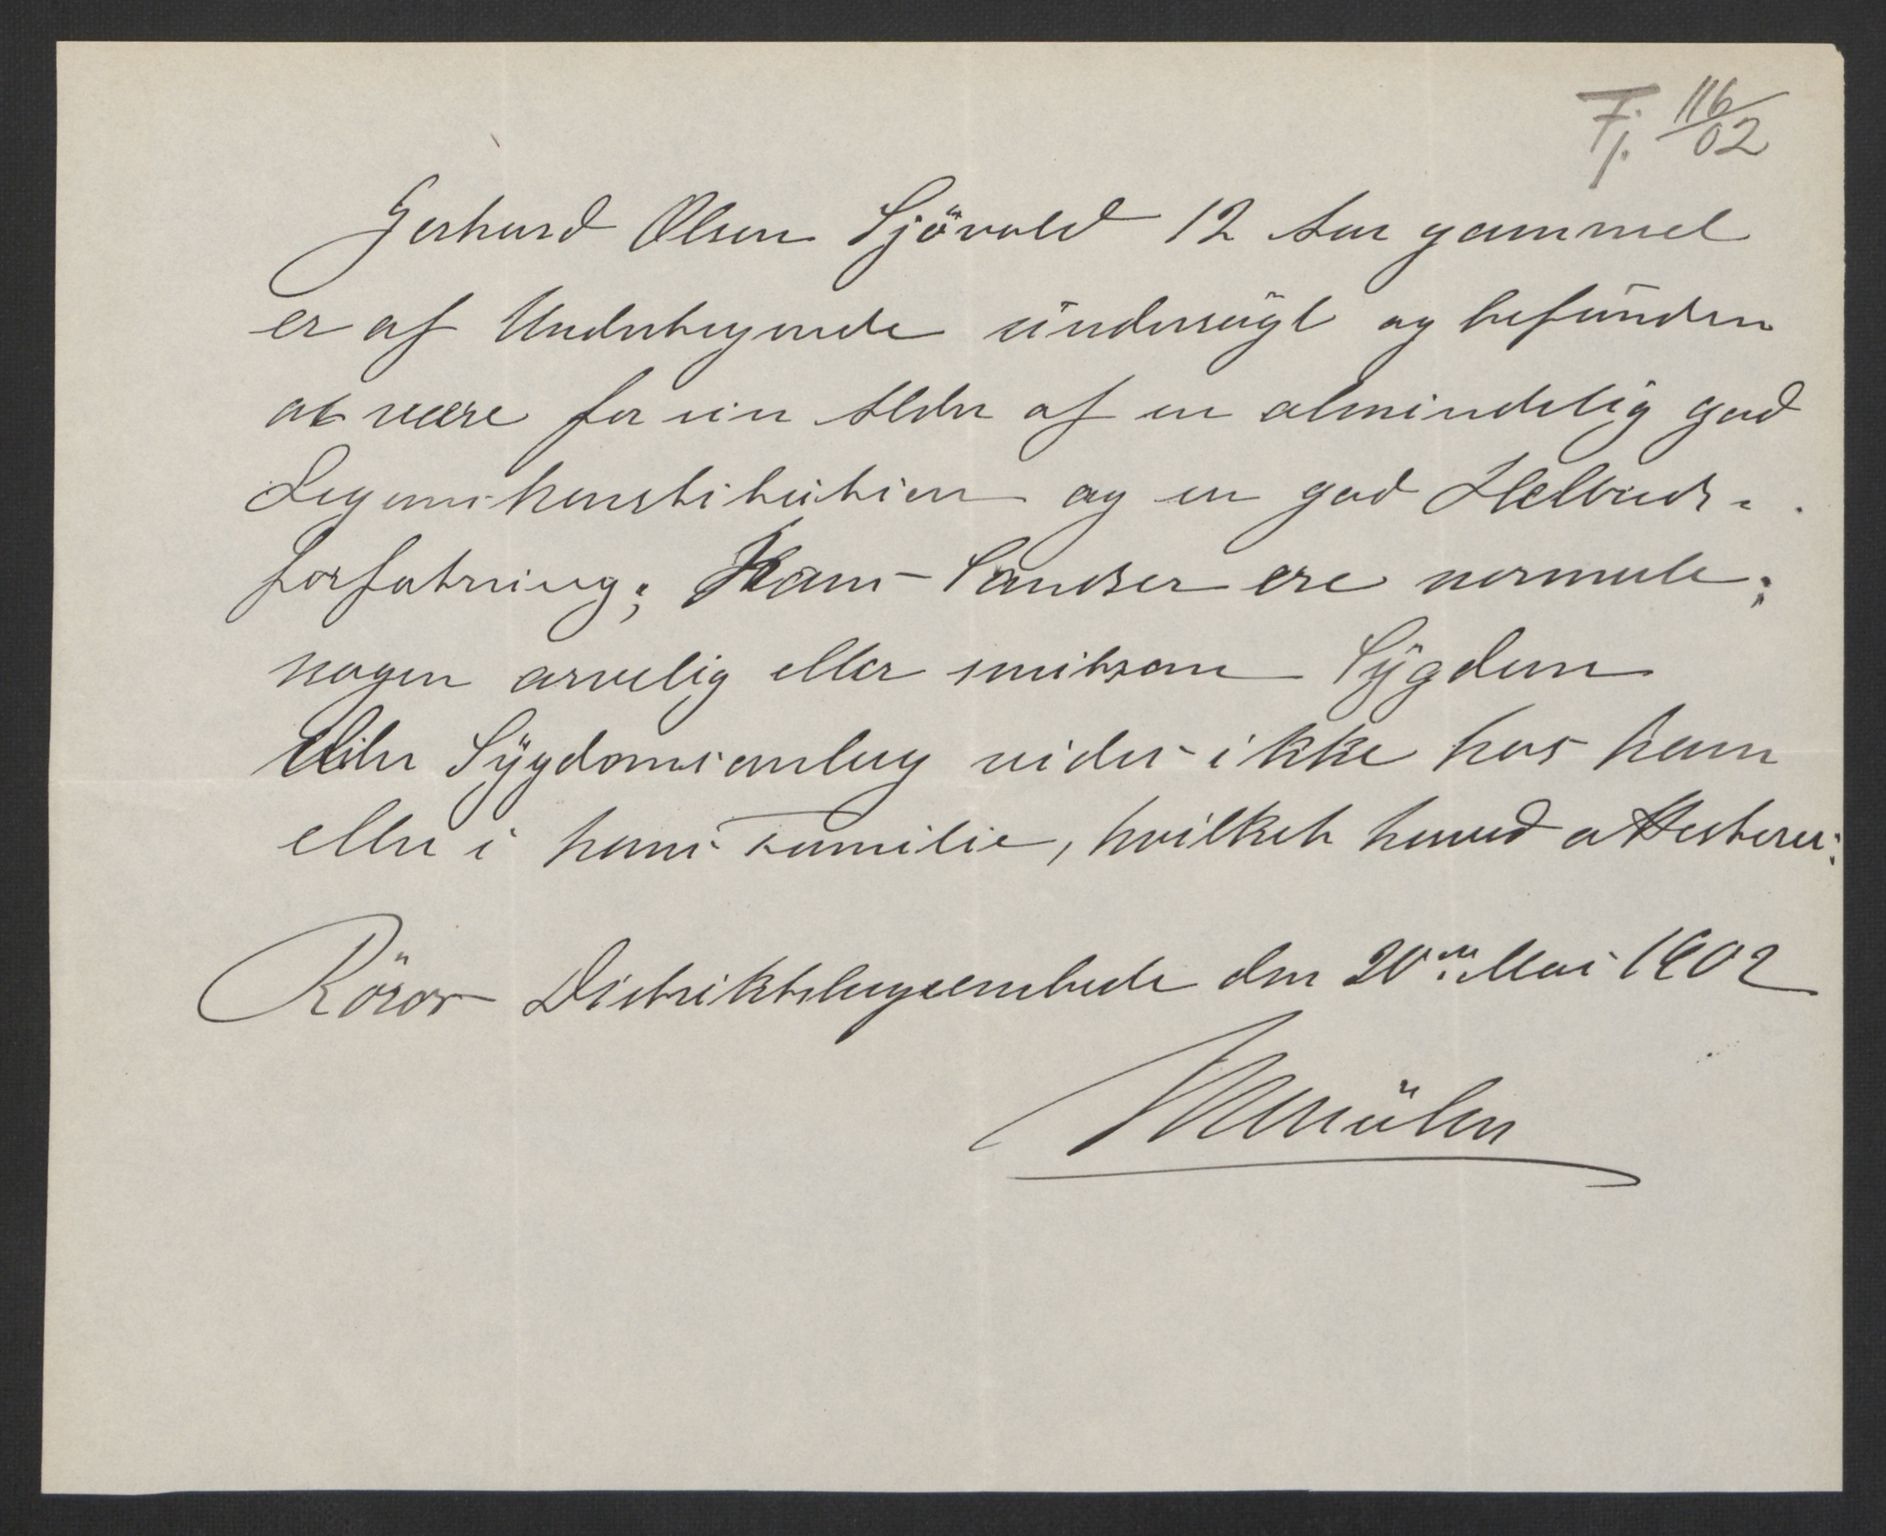 Fj. 116/02
Gerhard Olsen Sjövold 12 Aar gammel
er af Undertegnede undersögt og befunden
at være for sin Alder af en almindelig god
Legemskonstitution og en god Helbreds-
forfatning; Hans Sandser ere normale;
nogen arvelig eller smitsom Sygdom
eller Sygdomsanlæg vides ikke hos ham
eller i hans Familie, hvilket herved attesteres:
Röros Distriktslægeembede den 20de Mai 1902